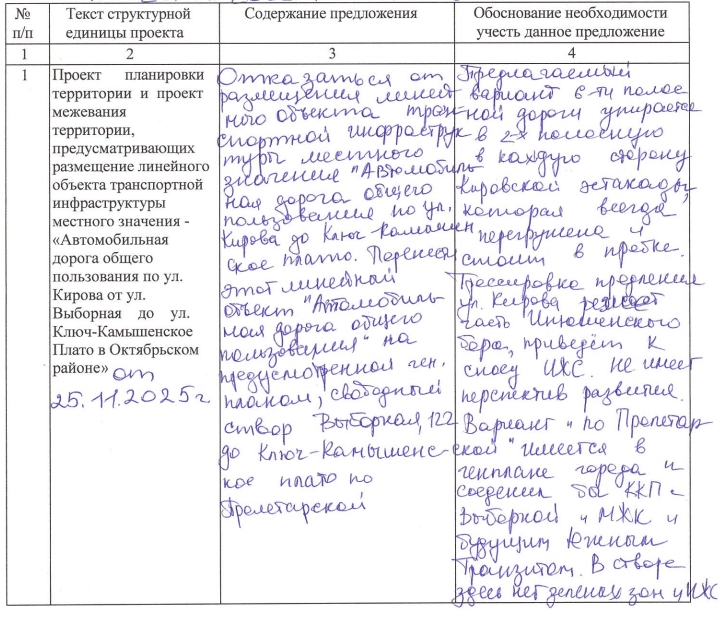 № п/п
Текст структурной единицы проекта
Содержание предложения
Обоснование необходимости учесть данное предложение
1
2
3
4
1
Проект планировки
территории и проект
межевания
территории,
предусматривающих
размещение линейного
объекта транспортной
инфраструктуры
местного значения -
«Автомобильная
дорога общего
пользования по ул.
Кирова от ул.
Выборная до ул.
Ключ-Камышенское
Плато в Октябрьском
районе» от
25.11.2025г
Отказаться от
размещения линей
ного объекта тран
спортной инфраструк
туры местного
значения "Автомобиль
ная дорога общего
пользования по ул.
Кирова до Ключ-Камышен
ское плато. Перенести
этот линейный
объект "Автомобиль
ная дорога общего
пользования" на
предусмотренной ген.
планом, свободный
створ Выборная, 122
до Ключ-Камышенс-
кое плато по
Пролетарской
Предлагаемый
вариант 6-ти полос
ной дороги упирается
в 2-х полосную
в каждую сторону
Кировской эстакады,
которая всегда
перегружена и
стоит в пробке.
Трассировка продления
ул. Кирова
часть Инюшенского
бора, приведёт к
сносу ИЖС. Не имеет
перспектив развития.
Вариант "по Пролетар
ской" имеется в
генплане города и
соединил бы ККП -
Выборной и МЖК и
будущим Южным
Транзитом. В створе
здесь нет зелёных зон и ИЖС